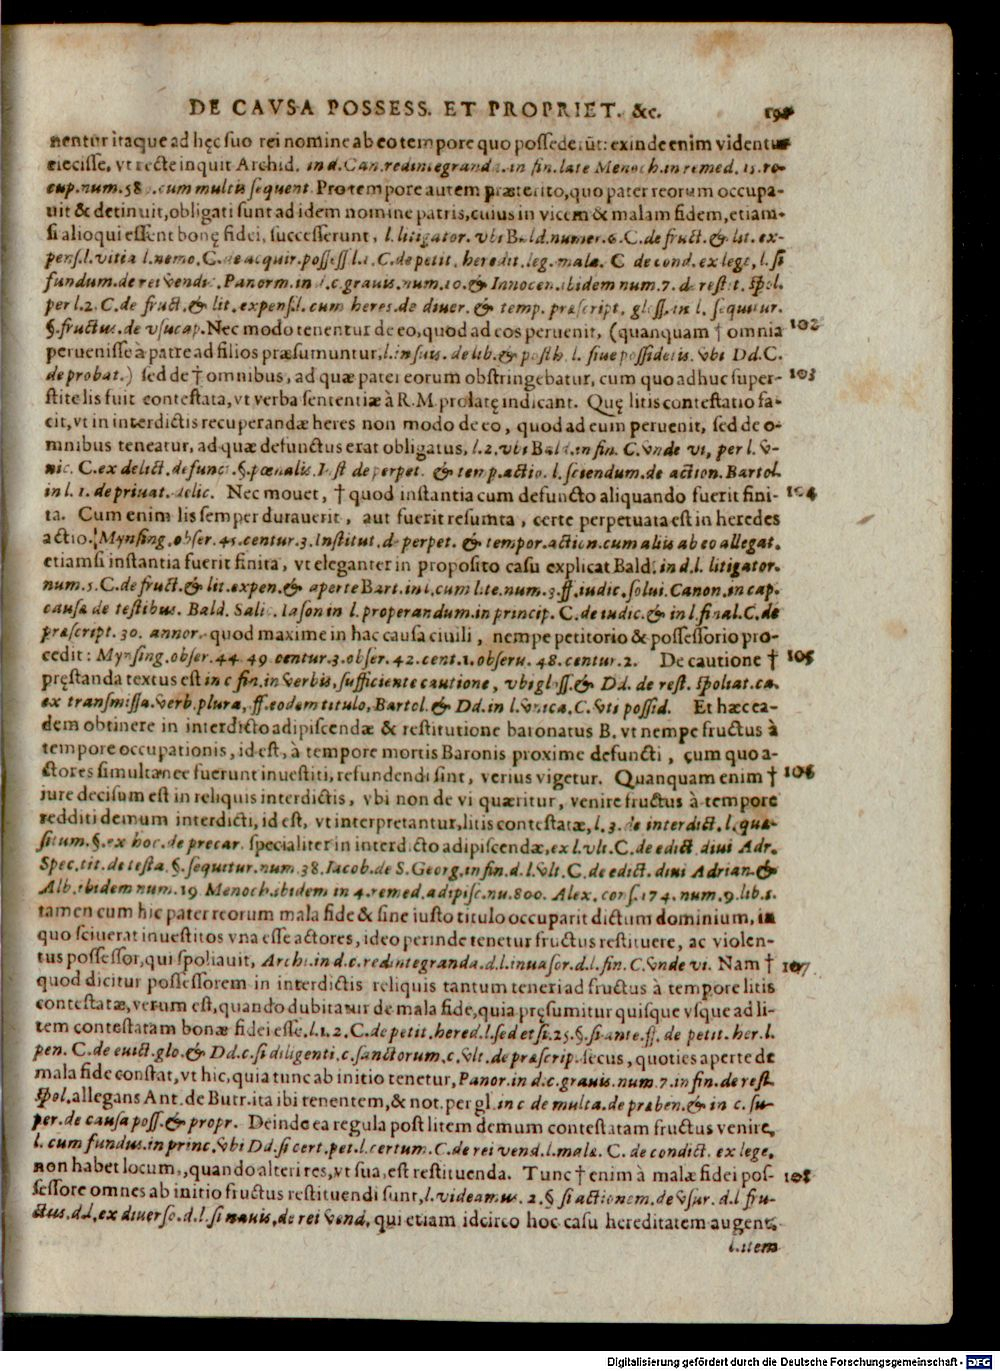 DE CAVSA POSSESS. ET PROPRIET. &c.
nentur itaque ad hęc suo rei nomine ab eo tempore quo possederūt: exinde enim videntur
eiecisse, vt recte inquit Archid. in d. Can. redintegranda. in fin. late Menoch. in remed. 15. re-
cup. num. 58 . cum multis sequent. Pro tempore autem præterito, quo pater reorum occupa-
uit & detinuit, obligati sunt ad idem nomine patris, cuius in vicem & malam fidem, etiam-
si alioqui essent bonę fidei, successerunt, l. litigator. vbi Bald. numer. 6. C. de fruct. & lit. ex-
pens. l. vitia l. nemo. C. de acquir. possess l. 1. C. de petit. heredit. leg. mala. C de cond. ex lege, l. si
fundum. de rei vendic. Panorm. in d. c. grauis. num. 10. & Innocen. ibidem num. 7. de restit. spol.
per l. 2. C. de fruct. & lit. expens. l. cum heres. de diuer. & temp. præscript. gloss. in l. sequitur.
§. fructus. de vsucap. Nec modo tenentur de eo, quod ad eos peruenit, (quanquam † omnia 102
peruenisse à patre ad filios præsumuntur, l. in suis. de lib. & posth. l. siue possidetis. vbi Dd. C.
de probat.) sed de † omnibus, ad quæ pater eorum obstringebatur, cum quo adhuc super- 103
stite lis fuit contestata, vt verba sententiæ à R. M. prolatę indicant. Quę litis contestatio fa-
cit, vt in interdictis recuperandæ heres non modo de eo, quod ad eum peruenit, sed de o-
mnibus teneatur, ad quæ defunctus erat obligatus, l. 2. vbi Bald. in fin. C. vnde vi, per l. v-
nic. C. ex delict. defunct. §. pœnalis. Inst de perpet. & temp. actio. l. sciendum. de action. Bartol.
in l. 1. de priuat. delic. Nec mouet, † quod instantia cum defuncto aliquando fuerit fini- 104
ta. Cum enim lis semper durauerit, aut fuerit resumta, certe perpetuata est in heredes
actio. Mynsing. obser. 45. centur. 3. Institut. de perpet. & tempor. action. cum aliis ab eo allegat.
etiamsi instantia fuerit finita, vt eleganter in proposito casu explicat Bald. in d. l. litigator.
num. 5. C. de fruct. & lit. expen. & aperte Bart. in l. cum lite. num. 3. ff. iudic. solui. Canon. in cap.
causa de testibus. Bald. Salic. Iason in l. properandum. in princip. C. de iudic. & in l. final. C. de
præscript. 30. annor. quod maxime in hac causa ciuili, nempe petitorio & possessorio pro-
cedit: Mynsing. obser. 44 49 centur. 3. obser. 42. cent. 1. obseru. 48. centur. 2. De cautione † 105
pręstanda textus est in c fin. in verbis, sufficiente cautione, vbi gloss. & Dd. de rest. spoliat. ca.
ex transmissa. verb. plura, ff. eodem titulo, Bartol. & Dd. in l. vnica. C. vti possid. Et hæc ea-
dem obtinere in interdicto adipiscendæ & restitutione baronatus B. vt nempe fructus à
tempore occupationis, id est, à tempore mortis Baronis proxime defuncti, cum quo a-
ctores simultanee fuerunt inuestiti, refundendi sint, verius vigetur. Quanquam enim † 106
iure decisum est in reliquis interdictis, vbi non de vi quæritur, venire fructus à tempore
redditi demum interdicti, id est, vt interpretantur, litis contestatæ, l. 3. de interdict. l. quæ-
situm. §. ex hoc. de precar. specialiter in interdicto adipiscendæ, ex l. vlt. C. de edict. diui Adr.
Spec. tit. de testa. §. sequitur. num. 38. Iacob. de S. Georg. in fin. d. l. vlt. C. de edict. diui Adrian. &
Alb. ibidem num. 19 Menoch. ibidem in 4. remed. adipisc. nu. 800. Alex. cons. 174. num. 9. lib. 5.
tamen cum hic pater reorum mala fide & sine iusto titulo occuparit dictum dominium, in
quo sciuerat inuestitos vna esse actores, ideo perinde tenetur fructus restituere, ac violen-
tus possessor, qui spoliauit, Archi. in d. c. redintegranda. d. l. inuasor. d. l. fin. C. vnde vi. Nam † 107
quod dicitur possessorem in interdictis reliquis tantum teneri ad fructus à tempore litis
contestatæ, verum est, quando dubitatur de mala fide, quia pręsumitur quisque vsque ad li-
tem contestatam bonæ fidei esse, l. 1. 2. C. de petit. hered. l. sed etsi. 25. §. si ante. ff. de petit. her. l.
pen. C. de euict. glo. & Dd. c. si diligenti. c. sanctorum. c. vlt. de præscrip. secus, quoties aperte de
mala fide constat, vt hic, quia tunc ab initio tenetur, Panor. in d. c. grauis. num. 7. in fin. de rest.
spol. allegans Ant. de Butr. ita ibi tenentem, & not. per gl. in c de multa. de præben. & in c. su-
per. de causa poss. & propr. Deinde ea regula post litem demum contestatam fructus venire,
l. cum fundus. in princ. vbi Dd. si cert. pet. l. certum. C. de rei vend. l. mala. C. de condict. ex lege,
non habet locum, quando alteri res, vt sua, est restituenda. Tunc † enim à malæ fidei pos- 108
sessore omnes ab initio fructus restituendi sunt, l. videamus. 2. § si actionem. de vsur. d. l fru-
ctus. d. l, ex diuerso. d. l. si nauis, de rei vend, qui etiam idcirco hoc casu hereditatem augent,
l. item
Digitalisierung gefördert durch die Deutsche Forschungsgemeinschaft - DFG